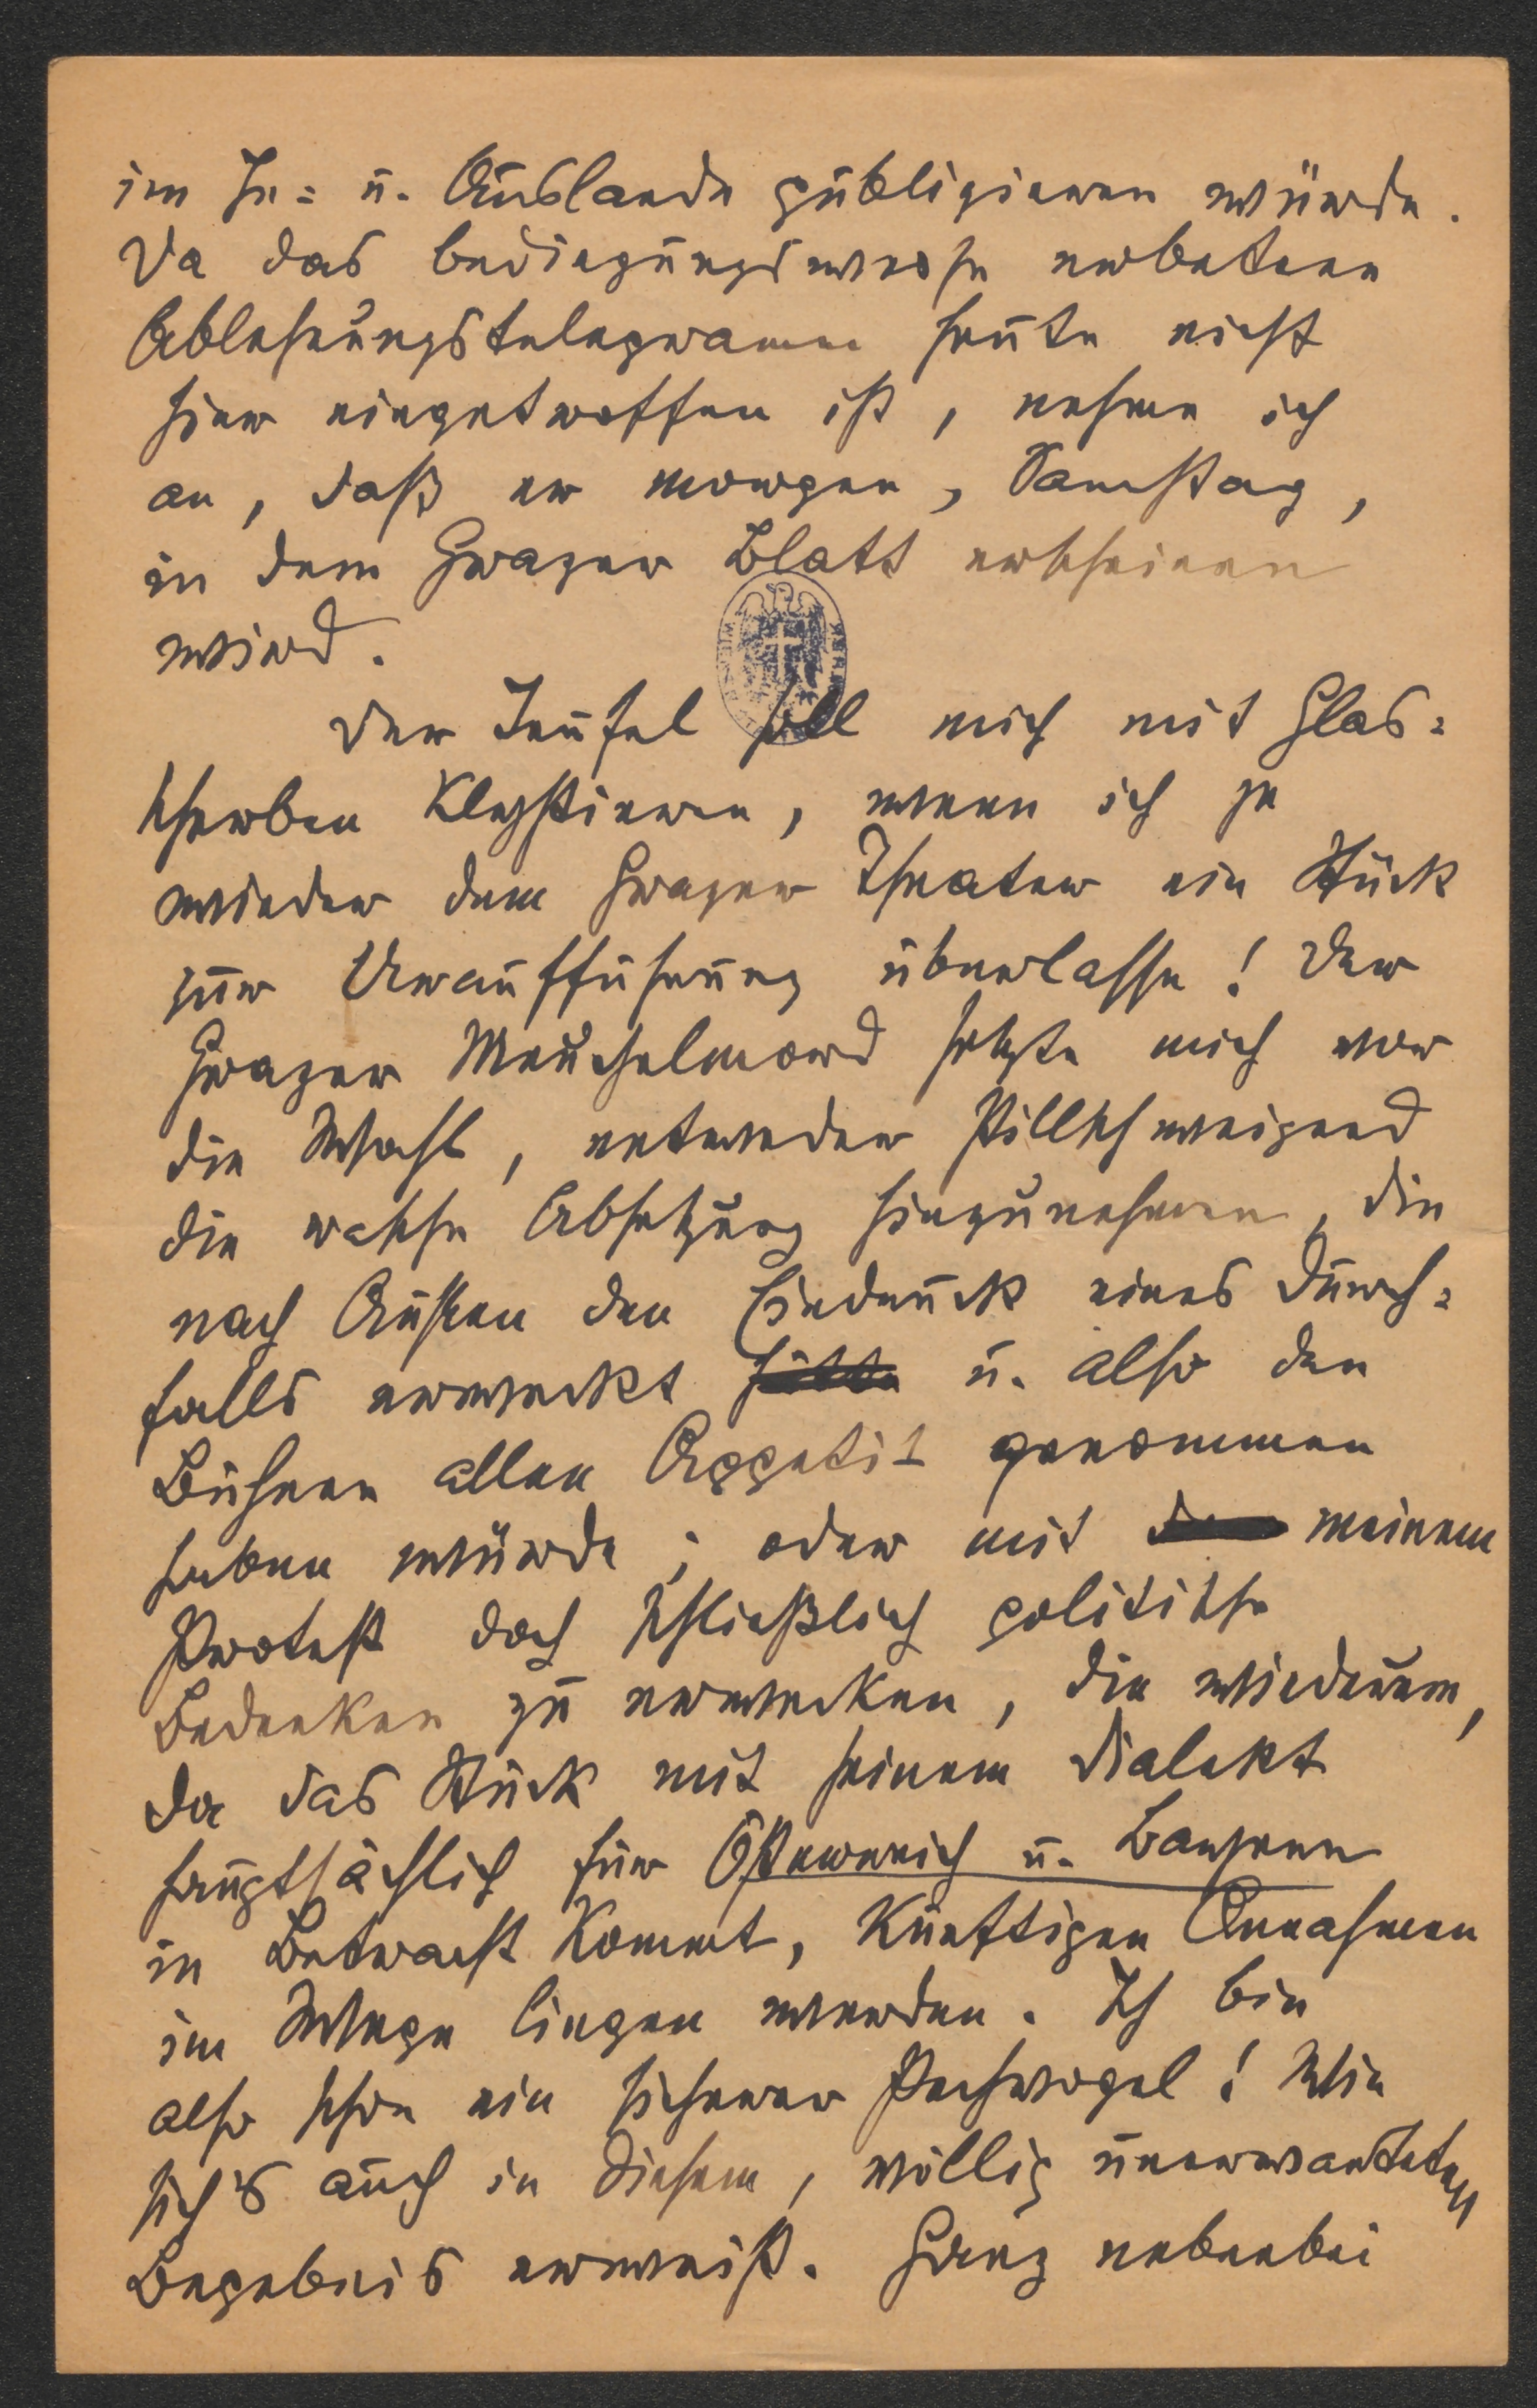 im In= u. Auslande publizieren würde.
Da das bedingungsweise erbetene
Ablehnungstelegramm heute nicht
hier eingetroffen ist, nehme ich
an, daß er morgen, Samstag,
in dem Grazer Blatt erscheinen
wird.
Der Teufel soll mich mit Glas=
scherben klystieren, wenn ich je
wieder dem Grazer Theater ein Stück
zur Uraufführung überlasse! Der
Grazer Meuchelmord setzte mich vor
die Wahl, entweder stillschweigend
die rasche Absetzung hinzunehmen, die
nach Außen den Eindruck eines Durch=
falls erweckt hätte u. also den
Bühnen allen Appetit genommen
haben würde; oder mit meinem
Protest doch schließlich politische
Bedenken zu erwecken, die wiederum,
da das Stück mit seinem Dialekt
hauptsächlich für Österreich u. Bayern
in Betracht kommt, künftigen Annahmen
im Wege liegen werden. Ich bin
also schon ein sicherer Pechvogel! Wie
sich's auch in diesem, völlig unerwarteten
Begebnis erweist. Ganz nebenbei